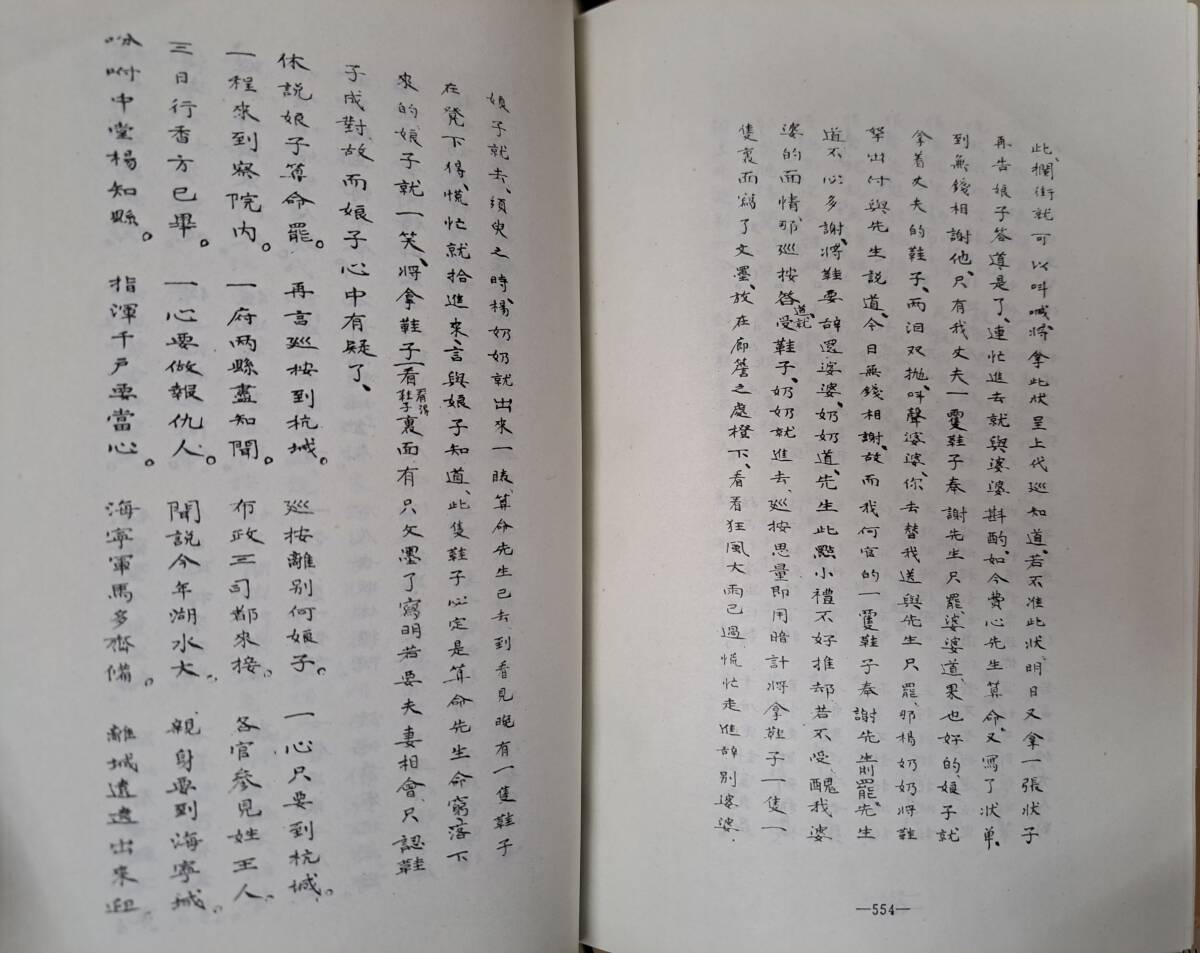 此、攔街就可以叫喊、將拿此狀呈上代巡知道、若不准此狀、明日又拿一張狀子
再告娘子答道是了、連忙進去就與婆婆斟酌、如今費心先生算命、又寫了狀单、
到無錢相謝他、只有我丈夫一雙鞋子奉謝先生只罷、婆婆道、果也好的、娘子就
拿着丈夫的鞋子、两泪双抛、叫聲婆婆、你去替我送與先生只罷、那楊奶奶將鞋
拏出付與先生説道、今日無錢相謝、故而我何官的一雙鞋子奉謝先生前罷、先生
道不必多謝、將鞋要辞还婆婆、奶奶道、先生此點小禮不好推却若不受、醜我婆
婆的面情、那巡按答道、我受鞋子、奶奶就進去、巡按思量即用暗計將拿鞋子一隻一
隻裏面寫了文墨、放在廊簷之處櫈下、看看狂風大雨已過、慌忙走進辞别婆婆、
—554—
娘子就去、須臾之時、楊奶奶就出來一睃、算命先生已去到看見晚有一隻鞋子
在櫈下得、慌忙就拾進來、言與娘子知道、此隻鞋子必定是算命先生命窮、落下
來的娘子就一笑、將拿鞋子一看看得鞋子裏面有只文墨了寫明若要夫妻相會、只認鞋
子成對、故而娘子心中有疑了、
休説娘子算命罷。再言巡按到杭城。巡按離别何娘子。一心只要到杭城。
一程來到察院内。一府两縣盡知聞。布政三司都來接。各官參見姓王人。
三日行香方已畢。一心要做報仇人。聞説今年湖水大。親身要到海寧城。
吩咐中堂楊知縣。指渾千戸要當心。海寧軍馬多齊備。離城遠遠出來迎。